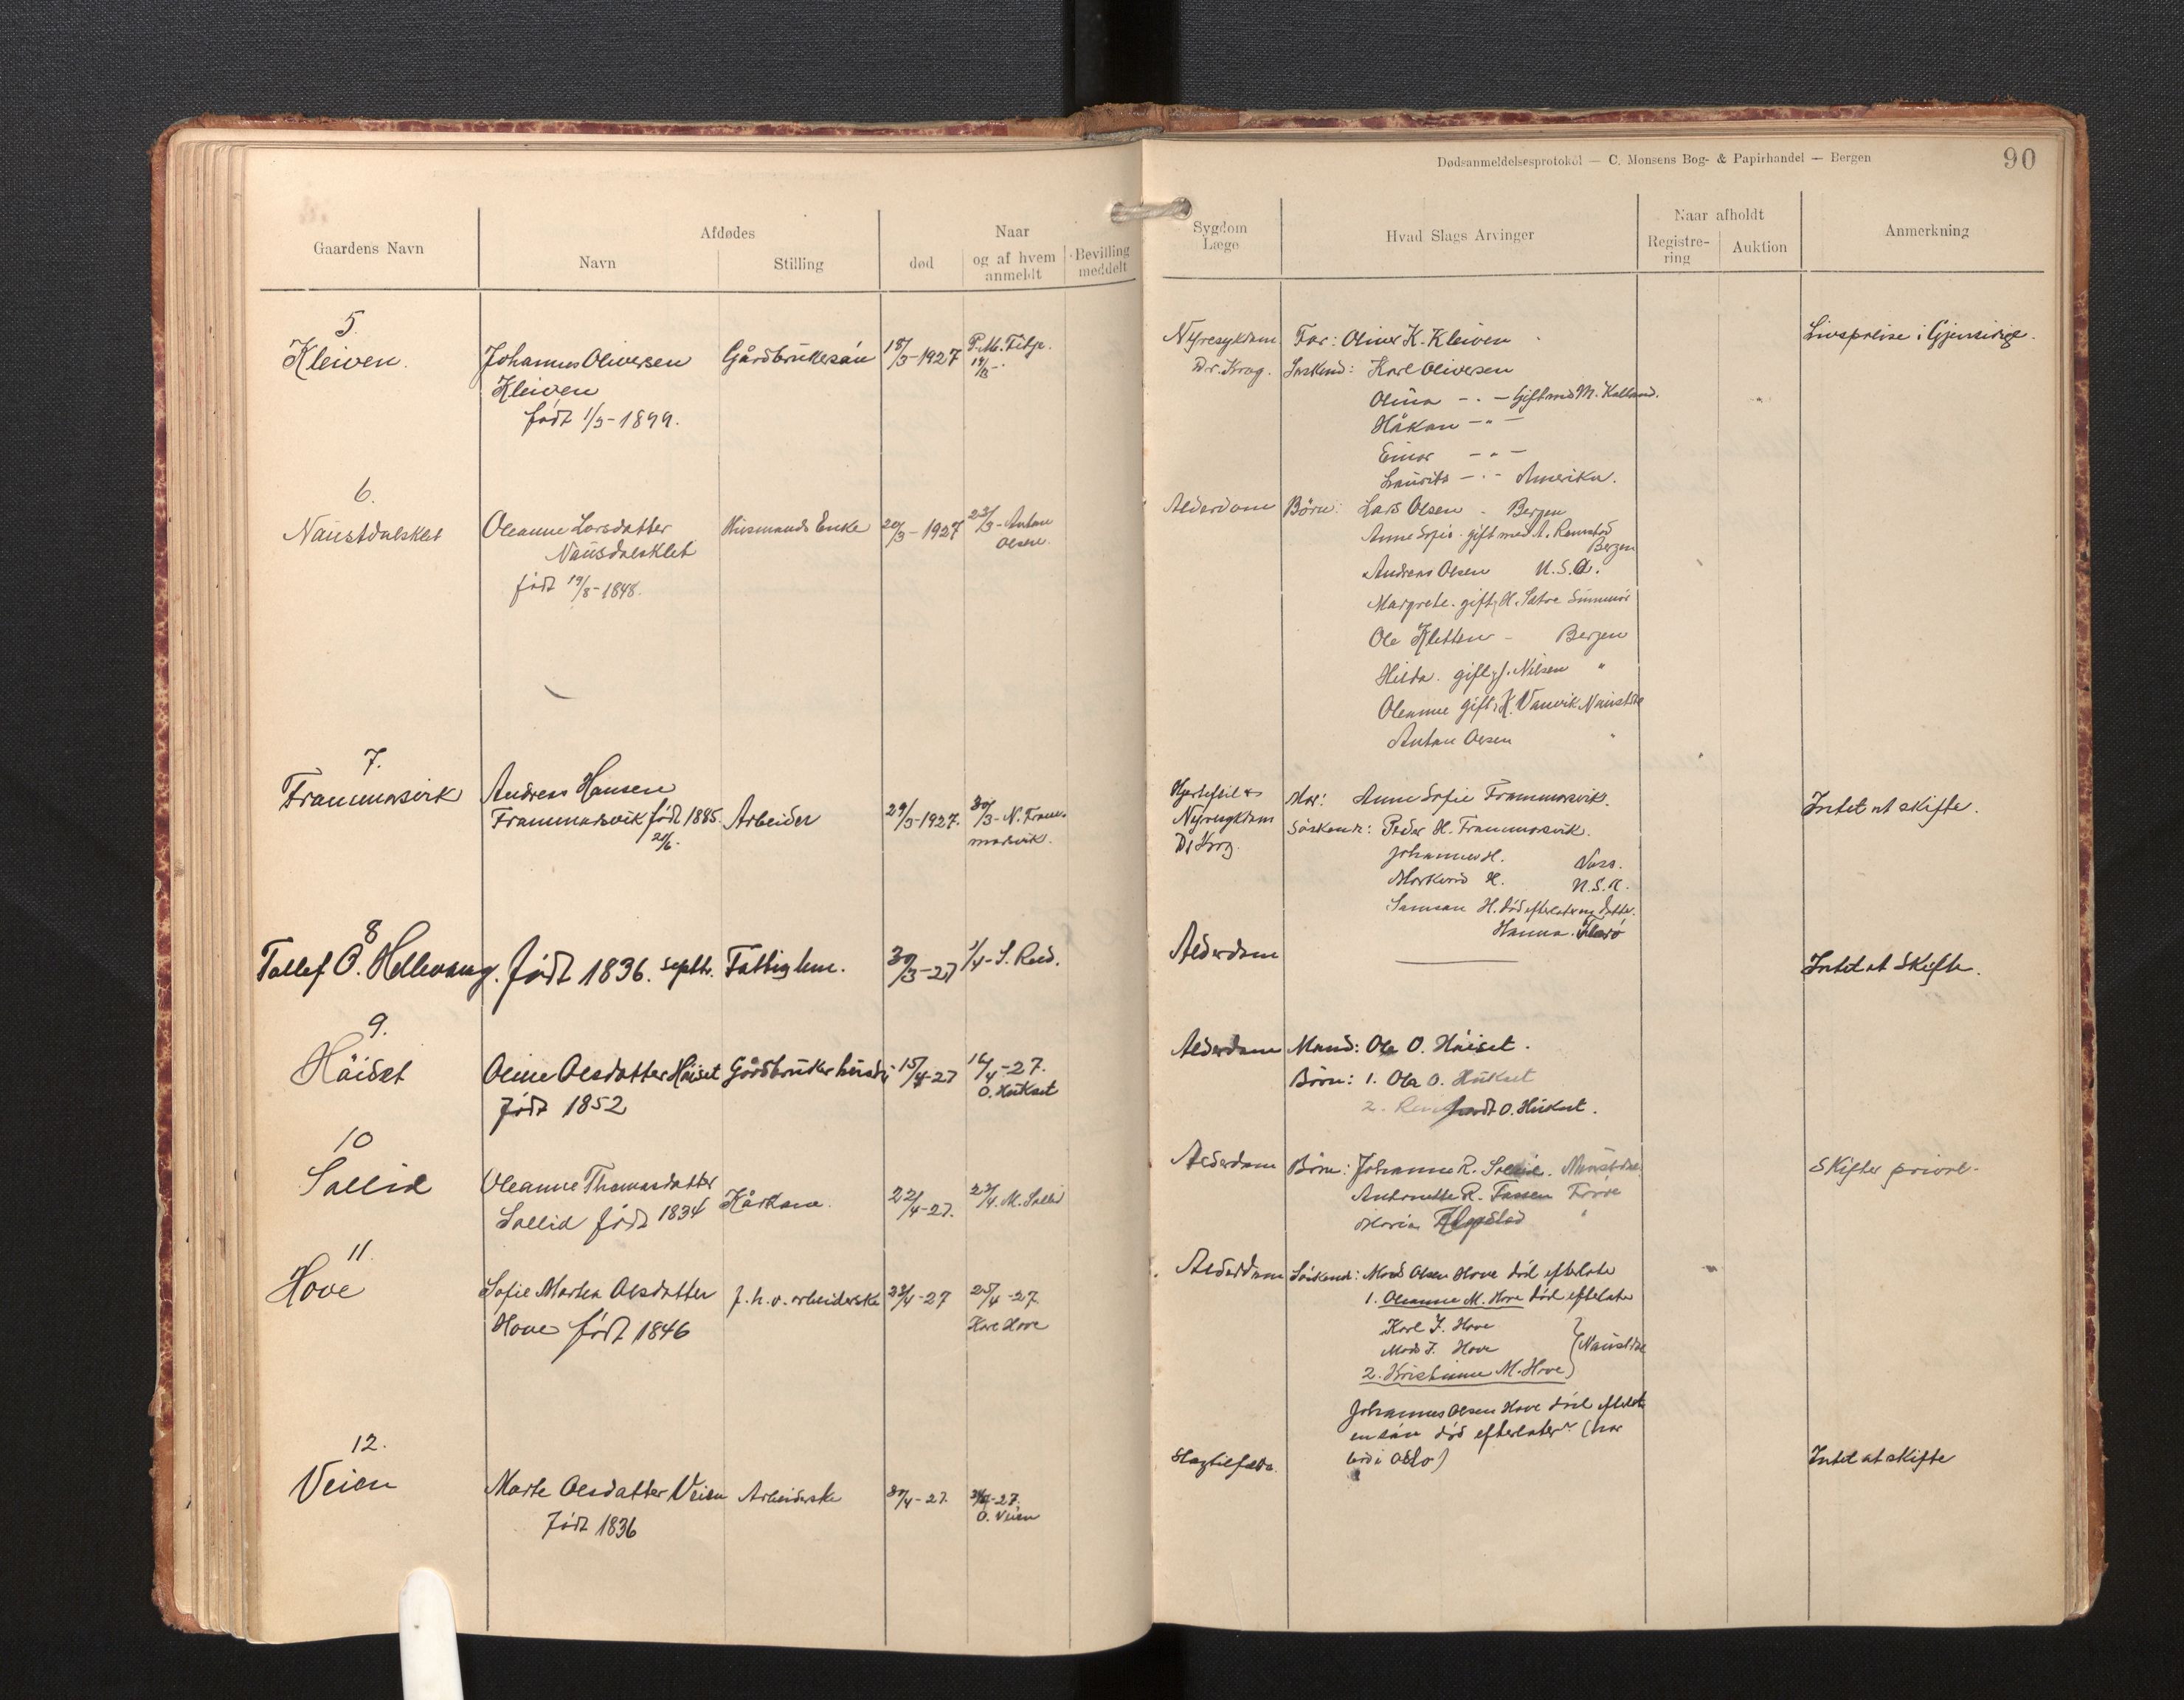 Dødsanmeldelsesprotokol — C. Monsens Bog- & Papirhandel — Bergen
90
Gaardens Navn
Afdødes
Navn
Stilling
Naar
død
og af hvem anmeldt
Bevilling meddelt
Sygdom
Læge
Hvad Slags Arvinger
Naar afholdt
Registre-
ring
Auktion
Anmerkning
5.
Kleiven.
Johannes Oliversen
Kleiven
født 1/3-1899.
Gårdbrukersøn
18/3-1927
Nyresykdom
Dr. Krog.
Far: Oliver K. Kleiven
Søskend: Karl Oliversen
Olina - " - Gift med M. Kalland.
Håkon - " -
Einar - " -
Laurits - " - Amerika.
Livspolise i Gjensidige.
6.
Naustdalsklet
Oleanne Larsdatter
Nausdalsklet
født 19/8-1848.
Husmands Enke
20/3-1927
23/3-Anton
Olsen.
Alderdom
Børn: Lars Olsen - Bergen
Anne Sofie gift med A.
Bergen
Andreas Olsen U.S.A.
Margrete gift H. Sætre Sunmør
Ole Kletten - Bergen
Hilda gift J. Nilsen "
Oleanne gift K. Vanvik Naustda
Anton Olsen "
7.
Frammarsvik
Andreas Hansen
Frammarsvik født 1885.
21/6.
Arbeider
29/3-1927.
30/3-N. Fram-
marsvik.
Hjertefeil &
Nyresykdom
Dr Krog.
Mor: Anne Sofie Frammarsvik.
Søskende: Peder H. Frammarsvik.
Johannes H.
H. U.S.A.
Samson H. død efterlater en datter.
Hanna. Florø
Intet at skifte.
8
Tollef O. Hellevang. født 1836. septbr.
Fattiglem.
30/3-27
1/4-S. Reed.
Alderdom
Intet at Skifte.
9.
Høiset
Oline Olsdatter Høiset
født 1852
Gårdbruker hustr.
15/4-27
16/4-27.
O. Hukset
Alderdom
Mand: Ola O. Høiset.
Børn: 1. Ola O. Hukset
2. O. Hukset.
10
Sollid
Oleanne Thomasdatter
Sollid født 1834
Kårkone.
22/4-27.
23/4. M. Sollid
Alderdom
Børn: Johanne R. Sollid. Naustdal.
Antonette R. Førde
Maria "
Skifter privat-
11.
Hove
Sofie Marta Olsdatter
Hove født 1846
f. h. v. arbeiderske
23/4-27
25/4-27.
Hove
Alderdom
Søskend: Mads Olsen Hove død efterlater
1. Oleanne M. Hove død efterlater
Karl J. Hove
Mads J. Hove
Naustdal
2. Kristianne M. Hove
Johannes Olsen Hove død efterlat
en søn død efterlater? (har
bod i Oslo)
12.
Veien
Marte Olsdatter Veien
født 1836
Arbeiderske
30/4-27.
O. Veien
Slagtilfælde.
Intet at skifte